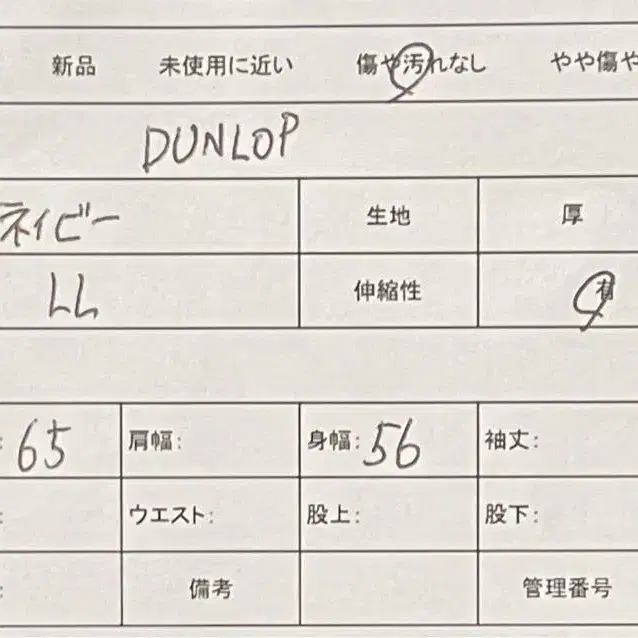 新品 未使用に近い 傷や汚れなし やや傷や
DUNLOP
ネイビー 生地 厚
LL 伸縮性 有
: 65 肩幅: 身幅: 56 袖丈:
: ウエスト: 股上: 股下:
: 備考 管理番号